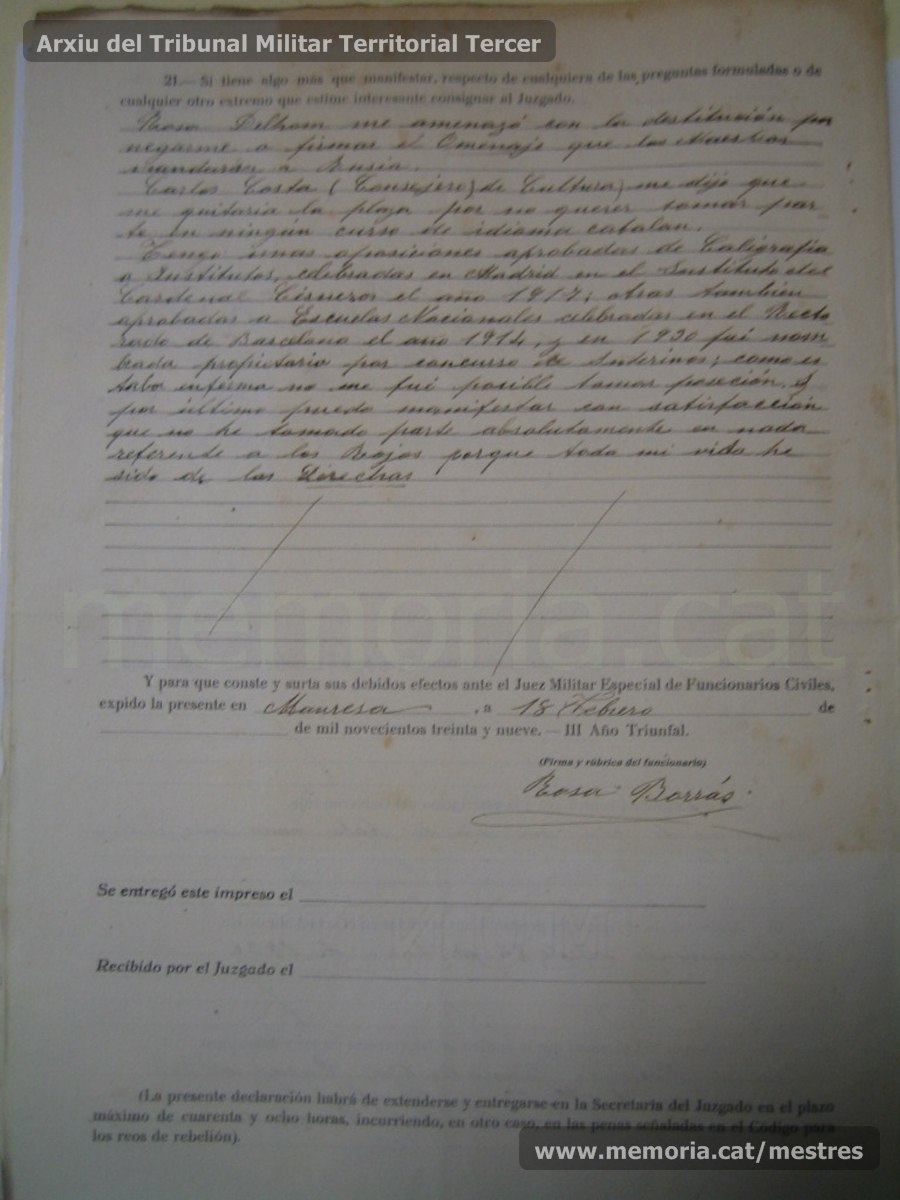 Arxiu del Tribunal Militar Territorial Tercer
21.— Si tiene algo más que manifestar, respecto de cualquiera de las preguntas formuladas o de
cualquier otro extremo que estime interesante consignar al Juzgado.
Rosa Delhom me amenazó con la destitución por
negarme a firmar el Omenaje que los Maestros
mandaran a Rusia.
Carlos Costa (Consejero) de Cultura) me dijo que
me quitaria la plaza por no querer tomar par-
te en ningún curso de idioma catalan.
Tengo unas oposiciones aprobadas de Caligrafía
a Institutos, celebradas en Madrid en el Instituto del
Cardenal Cisneros el año 1917; otras también
aprobadas a Escuelas Nacionales celebradas en el Recto
rado de Barcelona el año 1914, y en 1930 fuí nom
brada propietaria por concurso de Interinos; como es
taba enferma no me fuí posible tomar poseción. Y
por último puedo manifestar con satisfacción
que no he tomado parte absolutamente en nada
referente a los Rojos porque toda mi vida he
sido de las Derechas
memoria.cat
Y para que conste y surta sus debidos efectos ante el Juez Militar Especial de Funcionarios Civiles,
expido la presente en Manresa, a 18 Febrero de
de mil novecientos treinta y nueve.— III Año Triunfal.
(Firma y rúbrica del funcionario)
Rosa Borrás
Se entregó este impreso el
Recibido por el Juzgado el
(La presente declaración habrá de extenderse y entregarse en la Secretaría del Juzgado en el plazo
máximo de cuarenta y ocho horas, incurriendo, en otro caso, en las penas señaladas en el Código para
los reos de rebelión).
www.memoria.cat/mestres